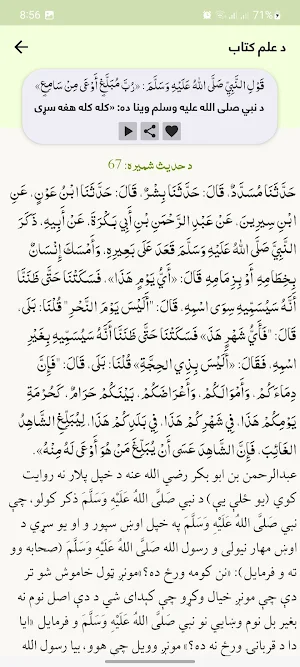 8:56
71%
د علم کتاب
قَوْلِ النَّبِيِّ صَلَّى اللهُ عَلَيْهِ وَسَلَّمَ: «رُبَّ مُبَلَّغٍ أَوْعَى مِنْ سَامِعٍ»
د نبي صلی الله علیه وسلم وینا ده: «کله کله هغه سړی
د حدیث شمېره: 67
حَدَّثَنَا مُسَدَّدٌ، قَالَ: حَدَّثَنَا بِشْرٌ، قَالَ: حَدَّثَنَا ابْنُ عَوْنٍ، عَنِ
ابْنِ سِيرِينَ، عَنْ عَبْدِ الرَّحْمَنِ بْنِ أَبِي بَكْرَةَ، عَنْ أَبِيهِ، ذَكَرَ
النَّبِيَّ صَلَّى اللهُ عَلَيْهِ وَسَلَّمَ قَعَدَ عَلَى بَعِيرِهِ، وَأَمْسَكَ إِنْسَانٌ
بِخِطَامِهِ أَوْ بِزِمَامِهِ قَالَ: «أَيُّ يَوْمٍ هَذَا»، فَسَكَتْنَا حَتَّى ظَنَنَّا
أَنَّهُ سَيُسَمِّيهِ سِوَى اسْمِهِ، قَالَ: "أَلَيْسَ يَوْمَ النَّحْرِ" قُلْنَا: بَلَى،
قَالَ: «فَأَيُّ شَهْرٍ هَذَا» فَسَكَتْنَا حَتَّى ظَنَنَّا أَنَّهُ سَيُسَمِّيهِ بِغَيْرِ
اسْمِهِ، فَقَالَ: «أَلَيْسَ بِذِي الحِجَّةِ» قُلْنَا: بَلَى، قَالَ: "فَإِنَّ
دِمَاءَكُمْ، وَأَمْوَالَكُمْ، وَأَعْرَاضَكُمْ، بَيْنَكُمْ حَرَامٌ، كَحُرْمَةِ
يَوْمِكُمْ هَذَا، فِي شَهْرِكُمْ هَذَا، فِي بَلَدِكُمْ هَذَا، لِيُبَلِّغِ الشَّاهِدُ
الغَائِبَ، فَإِنَّ الشَّاهِدَ عَسَى أَنْ يُبَلِّغَ مَنْ هُوَ أَوْعَى لَهُ مِنْهُ».
عبدالرحمن بن ابو بکر رضی الله عنه د خپل پلار نه روایت
کوي (یو ځلي یې) د نبي صَلَّى اللهُ عَلَيْهِ وَسَلَّمَ ذکر کولو، چې
نبي صَلَّى اللهُ عَلَيْهِ وَسَلَّمَ په خپل اوښ سپور و او یو سړي د
اوښ مهار نیولی و رسول الله صَلَّى اللهُ عَلَيْهِ وَسَلَّمَ (صحابه وو
ته و فرمایل): «نن کومه ورځ ده؟» مونږ ټول خاموش شو تر
دې چې مونږ خیال وکړو چې کېدای شي د دې اصل نوم نه
بغیر بل نوم وښایي نو نبي صَلَّى اللهُ عَلَيْهِ وَسَلَّمَ و فرمایل «ایا
دا د قربانۍ ورځ نه ده؟» مونږ وویل چې هوو، بیا رسول الله